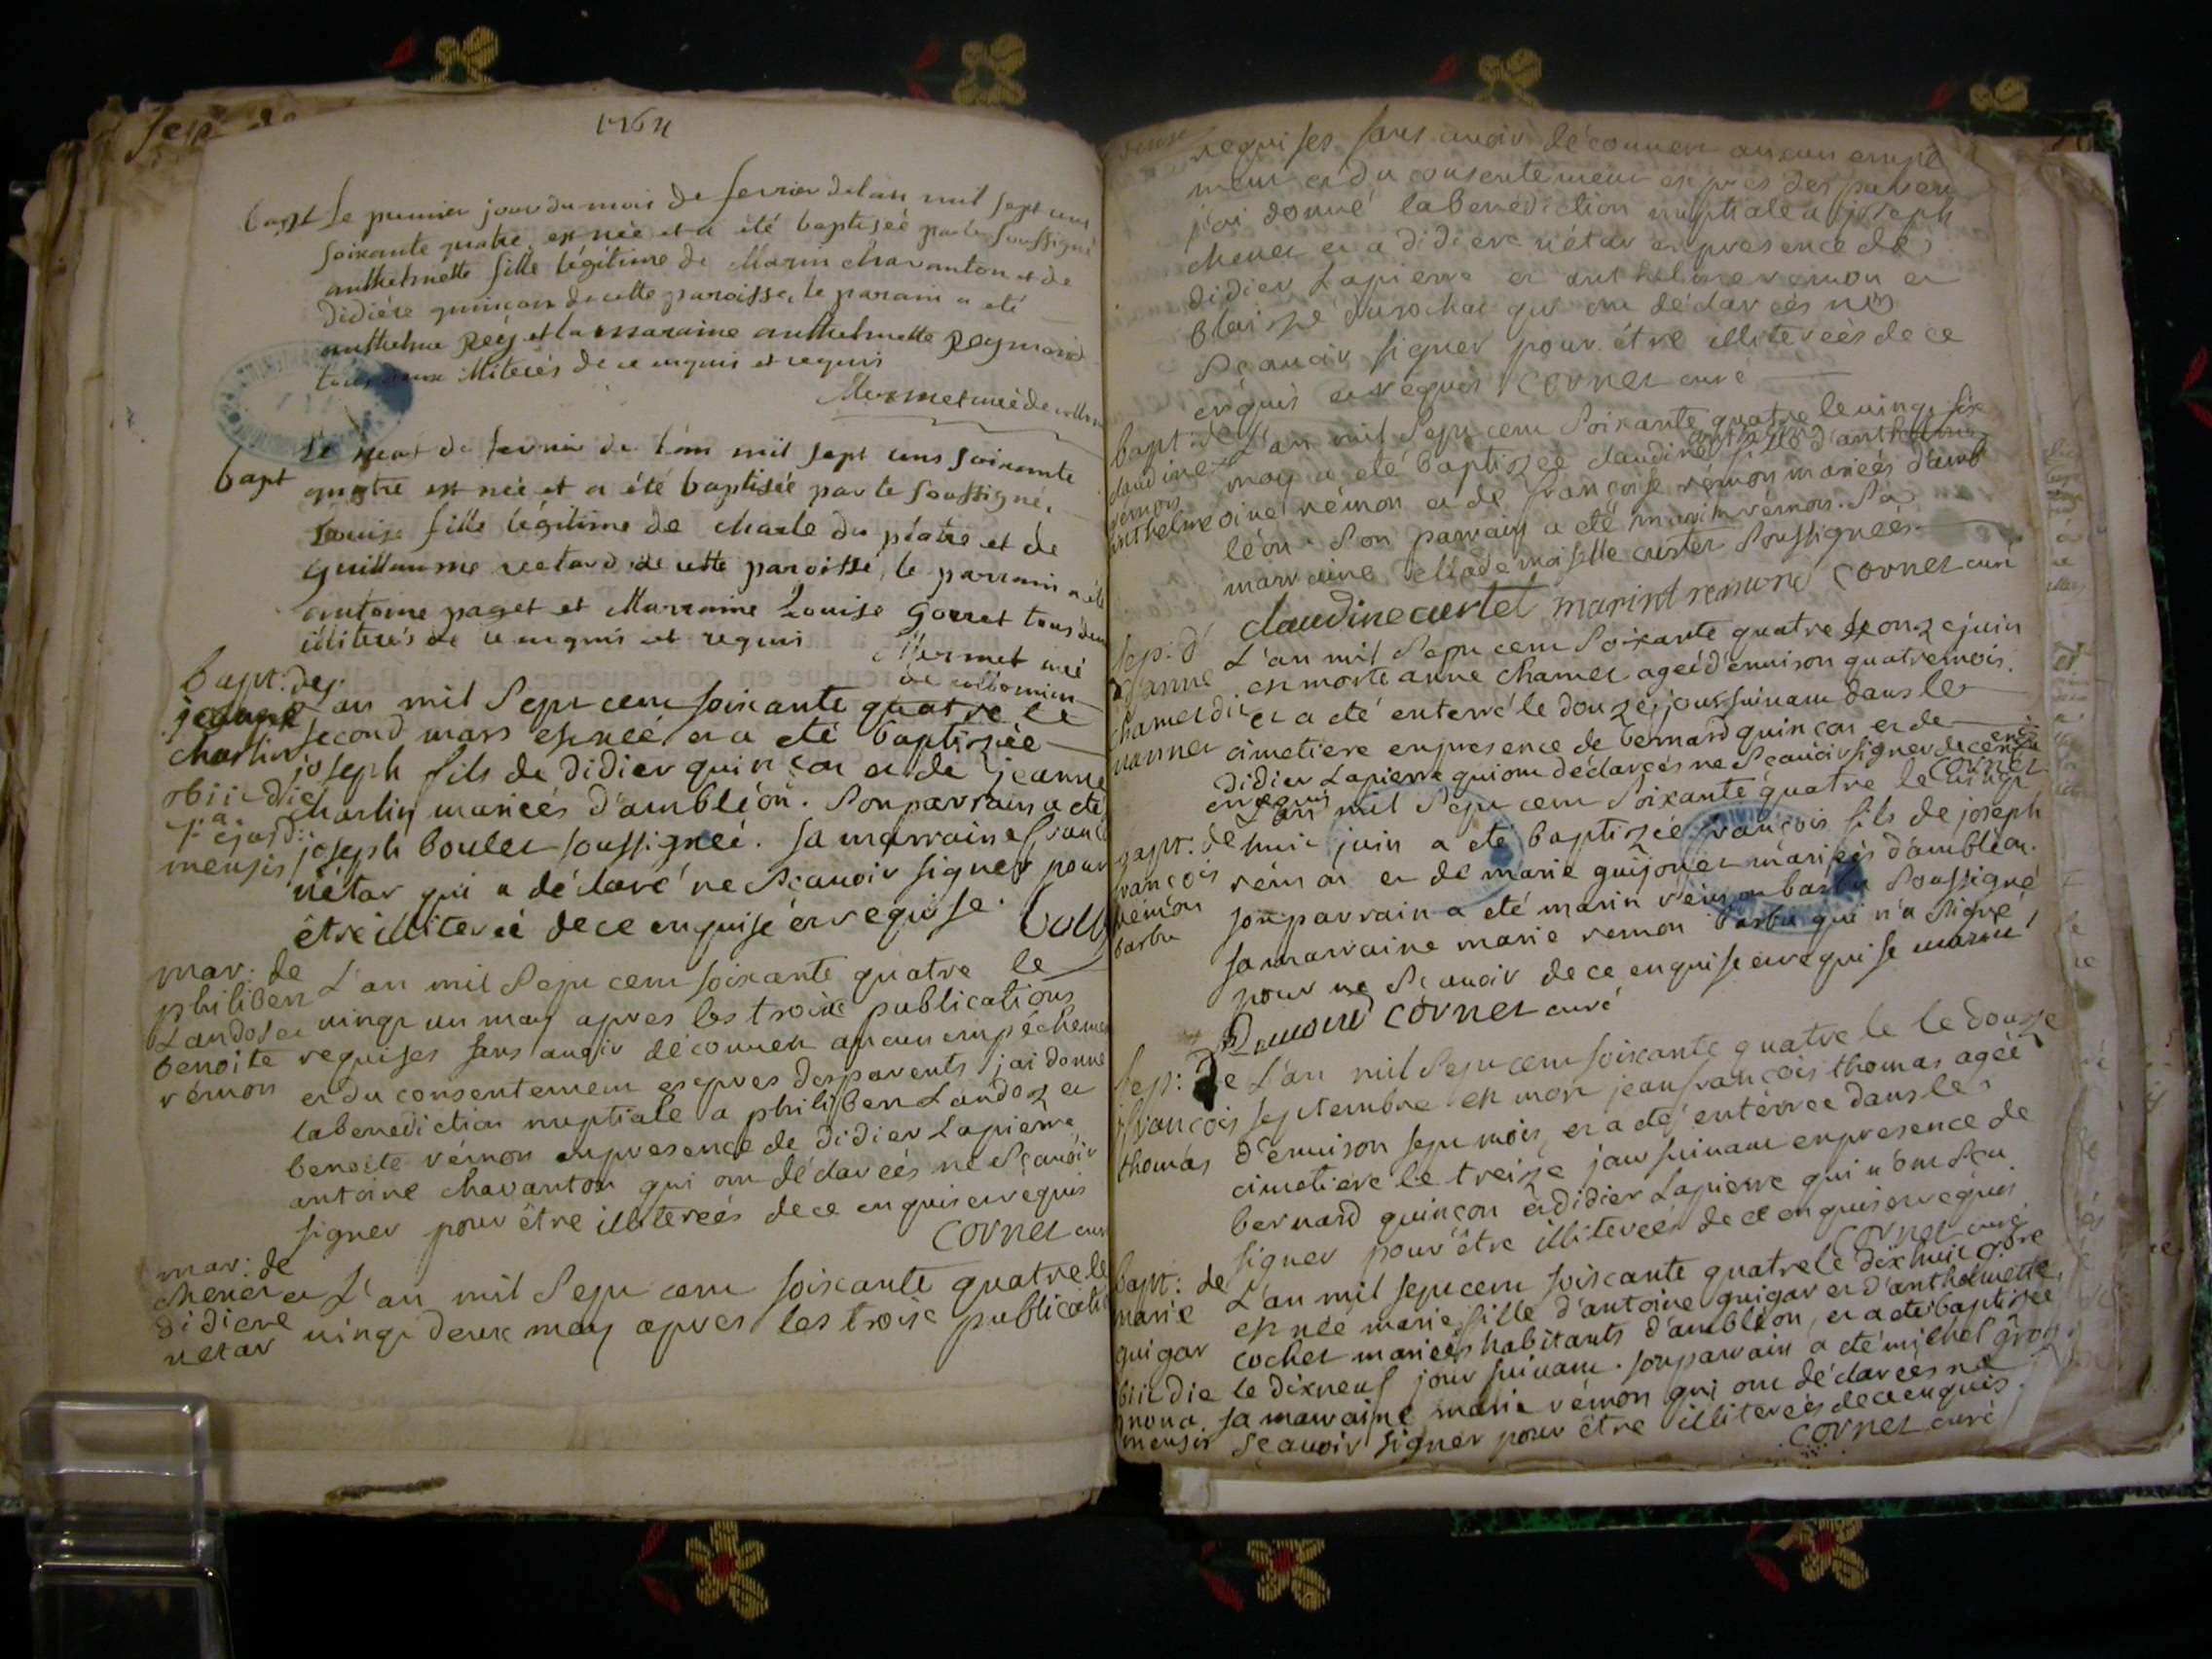 1764
bapt Le premier jour du mois de fevrier de lan mil sept cens
soixante quatre est née et a été baptisée par le soussigné
anthelmette fille légitime de Marin chavanton et de
didiére quinçon de cette paroisse, le parain a eté
anthelme Rey et la maraine anthelmette Reymond
tous deux illiterés de ce enquis et requis
Mermet curé de
bapt Le neuf de fevrier de l'an mil sept cens soixante
quatre est née et a été baptisée par le soussigné,
Louise fille légitime de charle du platre et de
Guillaumine netard de cette paroisse, le parrain a été
antoine paget et Marraine Louise Gorret tous deux
illiterés de ce enquis et requis
Mermet curé
de collomieu
bapt. de j. an mil Sept cent soixante quatre le
jeanne second mars est née et a eté baptizée
charlin joseph fils de didier quinçon et de jeanne
obiit die charlin mariéés d'ambléon. Son parrain a eté
joseph boulet soussigneé. sa marraine franc
mensis nétar qui a déclaré ne Sçauoir signer pour
être illitereé de ce enquise et requise.
mar: de
philibert L'an mil Sept cent soixante quatre le
Landos et vingt un may apres les troix publications
benoite requises sans auoir découuert aucun empéchement
rémon et du consentement exprès des parents j'ai donné
la benediction nuptiale a philibert Landoz et
benoite rémon en presence de didier Lapierre
antoine chavanton qui ont déclareés ne Sçauoir
signer pour être illitereés de ce enquis et requis
cornet curé
mar: de
chenet et L'an mil Sept cent soixante quatre le
didiere vingt deux may apres les troix publicati
netar
requises sans auoir découuert aucun empé
ment et du consentement exprès des paren
j'ai donné la benédiction nuptiale a joseph
chenet et a didiere nétar en presence de
didier Lapierre et anthelme remon et
blaise durochat qui ont déclareés ne
Sçauoir signer pour être illitereés de ce
enquis et requis cornet curé
bapt: de L'an mil Sept cent Soixante quatre le vingt six
claudine may a eté baptizeé claudine fille d'anthelme
rémon oine rémon et de françoise rémon marieés d'amb
anthelme léon. Son parrain a eté marin rémon. Sa
marraine Mademoiselle curtet Soussigneés.
claudine curtet marint remond cornet curé
sep: d' L'an mil Sept cent Soixante quatre le onze juin
anne est morte anne chamet ageé d'enuison quatre mois.
chamet dit et a eté enterré le douze jour suiuant dans le
vannet cimetiere en presence de bernard quinçon et de
didier Lapierre qui ont déclareés ne Sçauoir signer de ce enq
enrequis cornet
bapt: de L'an mil Sept cent Soixante quatre le vingt
françois huit juin a eté baptizée françois fils de joseph
rémon rémon et de marie guijonet marieés d'ambléon.
barbu son parrain a eté marin rémon barbu Soussigné
sa marraine marie remon barbu qui n'a Signé
pour ne Sçauoir de ce enquise et requise marin
Remond cornet curé
Sep: de L'an mil Sept cent soixante quatre le le douze
j françois septembre est mort jean françois thomas ageé
thomas d'enuison sept mois, et a eté enterree dans le
cimetiere le treize jour suiuant en presence de
bernard quinçon et didier Lapierre qui n'ont Sçu
signer pour être illitereés de ce enquis et requis
cornet curé
bapt: de L'an mil sept cent soixante quatre le dix huit
marie est née marie fille d'antoine guigar et d'anthelmette
guigar cochet marieés habitants d'ambléon, et a eté baptizee
obiit die le dixneuf jour suiuant. son parrain a eté michel gros.
nona sa marraine marie rémon qui ont déclareés ne
mensis Sçauoir signer pour être illitereés de ce enquis.
cornet curé